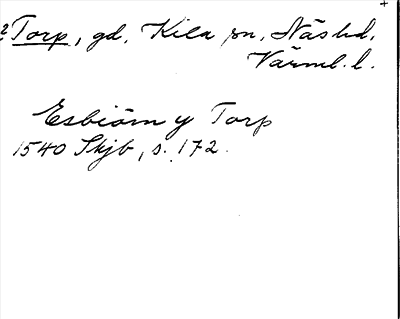 +
? Torp, gd, Kila sn, Näs hd,
Värml. l.
Esbiörn y Torp
1540 Skjb, s. 172.